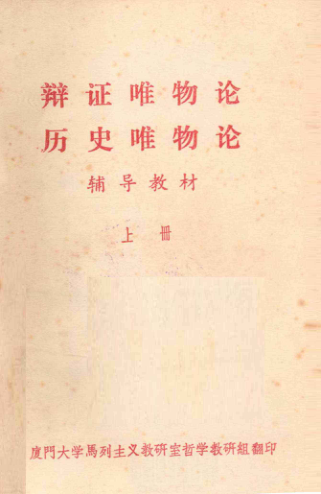 辩证唯物论
历史唯物论
辅导教材
上册
廈門大学馬列主义教研室哲学教研組翻印